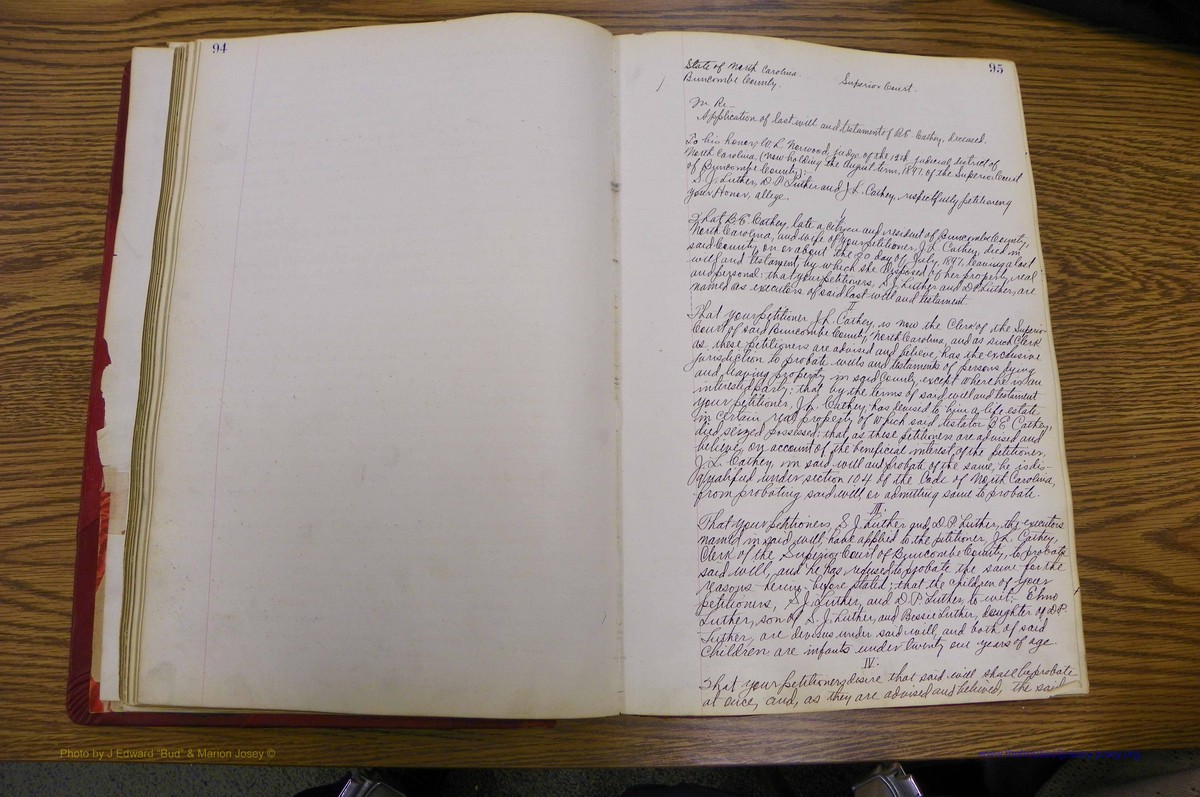 94
95
State of North Carolina.
Buncombe County.
Superior Court.
In Re-
Application of last will and testament of B.E. Cathey, deceased.
To his honor, W. L. Norwood, judge of the 12th judicial district of
North Carolina, (now holding the August term, 1897, of the Superior Court
of Buncombe County):
S. J. Luther, D. P. Luther and J. L. Cathey, respectfully petitioning
your Honor, allege.
I
That B. E. Cathey, late a citizen and resident of Buncombe County,
North Carolina, and wife of your petitioner, J. L. Cathey, died in
said County, on or about the 20 day of July, 1897, leaving a last
will and testament, by which she disposed of her property, real
and personal: that your petitioners, S. J. Luther and D. P. Luther, are
named as executors of said last will and testament.
II
That your petitioner J. L. Cathey, is now the Clerk of the Superior
Court of said Buncombe County, North Carolina, and as such Clerk
as these petitioners are advised and believe, has the exclusive
jurisdiction to probate wills and testaments of persons dying
and leaving property in said County, except where he is an
interested party: that by the terms of said will and testament
your petitioner, J. L. Cathey, has devised to him a life estate
in certain real property of which said testator B. E. Cathey,
died seized possessed: that as these petitioners are advised and
believe, on account of the beneficial interest of the petitioner,
J. L. Cathey, in said will and probate of the same, he is dis-
qualified under section 104 of the Code of North Carolina,
from probating said will or admitting same to probate.
III.
That your petitioners, S. J. Luther and D. P. Luther, the executors
named in said will, have applied to the petitioner J. L. Cathey,
Clerk of the Superior Court of Buncombe County, to probate
said will, and he has refused to probate the same for the
reasons herein before stated: that the children of your
petitioners, S. J. Luther, and D. P. Luther, to wit: Elmo
Luther, son of S. J. Luther, and Bessie Luther, daughter of D. P.
Luther, are devisees under said will, and both of said
children are infants under twenty one years of age.
IV.
That your petitioners desire that said will shall be probate
at once, and, as they are advised and believed, the said
Photo by J Edward "Bud" & Marion Josey ©